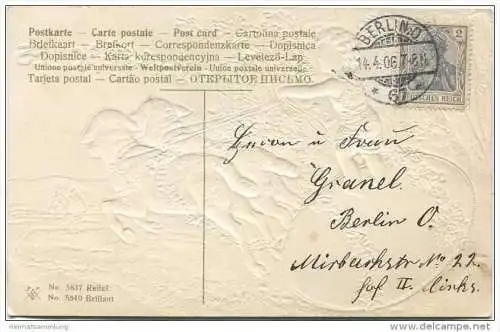 Postkarte - Carte postale - Post card - Cartolina postale
Brefkaart - Brefkort - Correspondenzkarte - Dopisnica
Dopisnice - Karta korespondencyjna - Levelező-Lap
Union postale universelle - Weltpostverein - Union postale universelle
Tarjeta postal - Cartão postal - ОТКРЫТОЕ ПИСЬМО.
BERLIN O
14.4.06
* 67
2
DEUTSCHES REICH
Herrn u Frau
Granel.
Berlin O.
Mirbachstr No 22.
Hof II links.
No. 5637 Relief
No. 5640 Brillant
Heimatsammlung
www.delcampe.net